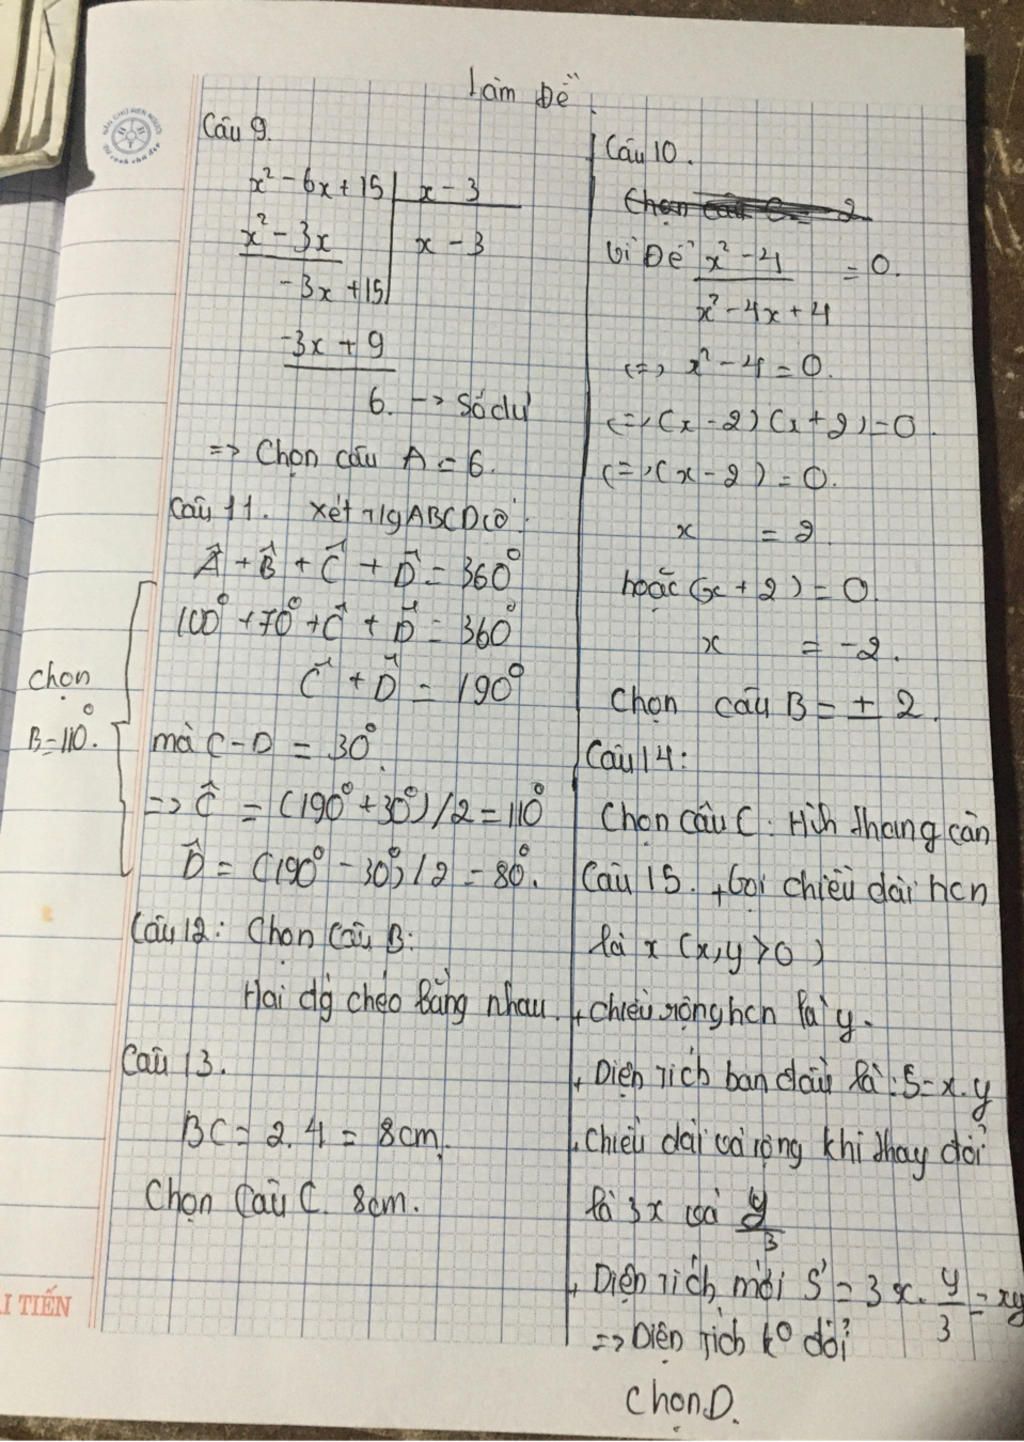 Làm Đề
Câu 9.
x² - 6x + 15 | x - 3
x² - 3x | x - 3
-3x + 15
-3x + 9
6. -> Số dư
=> Chọn câu A = 6.
Câu 11. Xét t/g ABCD có:
Â + B̂ + Ĉ + D̂ = 360°
100° + 70° + Ĉ + D̂ = 360°
Ĉ + D̂ = 190°
mà C - D = 30°.
=> Ĉ = (190° + 30°)/2 = 110°
D̂ = (190° - 30°)/2 = 80°.
chọn
B = 110°.
Câu 12: Chọn câu B:
Hai đg chéo bằng nhau.
Câu 13.
BC = 2.4 = 8cm.
Chọn Câu C. 8cm.
Câu 10.
Vì Để x² - 4 / x² - 4x + 4 = 0.
(=) x² - 4 = 0.
(=) (x - 2)(x + 2) = 0.
(=) (x - 2) = 0.
x = 2.
hoặc (x + 2) = 0.
x = -2.
Chọn câu B = ± 2.
Câu 14:
Chọn câu C: Hìh thang cân
Câu 15. + Gọi chiều dài hcn
là x (x, y > 0)
+ chiều rộng hcn là y.
+ Diện tích ban đầu là: S = x.y
+ chiều dài và rộng khi thay đổi
là 3x và y/3
+ Diện tích mới S' = 3x . y/3 = xy
=> Diện tích kº đổi
Chọn D.
ẢI TIẾN